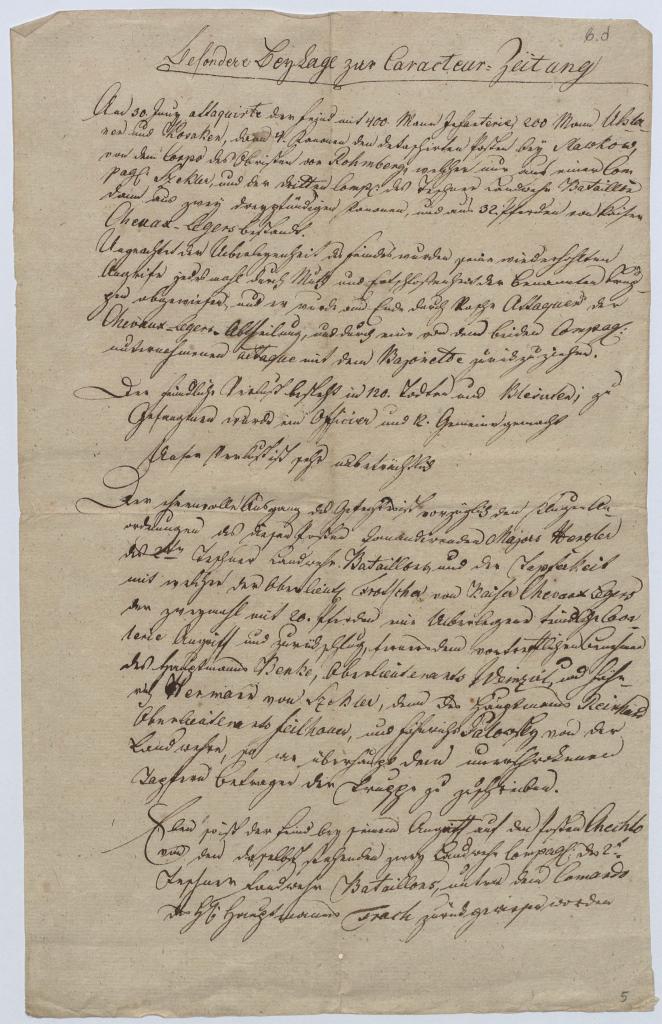 6.d
Besondere Beylage zur Caracteur-Zeitung
Am 30. Juny attaquirte der Feind mit 400. Mann Infanterie, 200 Mann Uhla-
nen und Kosaken, dann 4. Kanonen den detachirten Posten bey
von dem Corps des Obristen von Rohmberg, welcher nur aus einer Com-
pag: Szekler, und der dritten Comp: des Teschner Landwehr Bataillon
dann aus zwey dreypfündigen Kanonen, und aus 32. Pferden von Kaiser
Chevaux-Legers bestand.
Ungeachtet der Ueberlegenheit des Feindes wurden seine wiederhohlten
Angriffe jedesmahl durch Muth und Entschlossenheit der benannten Trup-
pen abgewiesen, und er wurde am Ende durch rasche Attaquen der
Chevaux-Legers Abtheilung, und durch eine von den beiden Compag:
unternohmenen Attaque mit dem Bajonette zurück zu ziehen.
Der feindliche Verlust besteht in 120. Todten und Bleßirten; zu
Gefangenen wurde ein Officier und 12. Gemeine gemacht
Unser Verlust ist sehr unbeträchtlich
Der ehrenvolle Ausgang des Gefechts ist vorzüglich den klugen An-
ordnungen des diesen Posten Comandirenden Majors Hengler
des 2ten Teschner Landwehr Bataillons, und der Tapferkeit
mit welcher der Oberlieut: von Kaiser Chevaux Legers
der zweymahl mit 20. Pferden eine Ueberlegene feindliche Caval-
lerie Angriff und zurückschlug, dem vortrefflichen Benehmen
des Hauptmanns Benke, Oberlieutenants und Fähn-
rich Hermann von Szekler, dann des Hauptmanns Reinhard
Oberlieutenants Feilhauer, und Fähnrichs von der
Landwehre, so wie überhaupt dem unerschrokenen
Tapfern Betragen der Truppe zu zuschreiben.
Eben so ist der Feind bey seinem Angriff auf den Posten Chechlo
von den daselbst stehenden zwey Landwehr Compag: des 2ten
Teschner Landwehr Bataillons, unter dem Comando
des H: Hauptmanns Trach zurückgewiesen worden
5